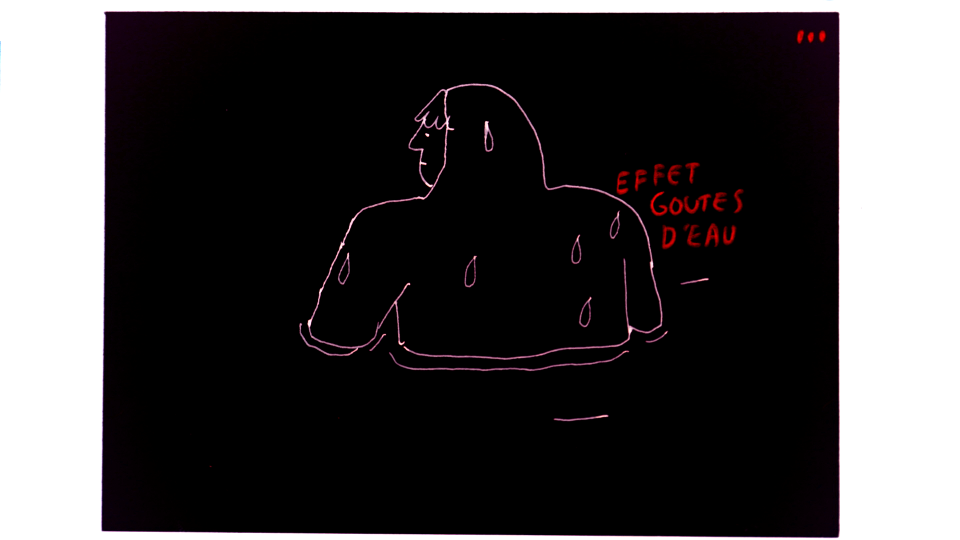 ...
EFFET
GOUTES
D'EAU